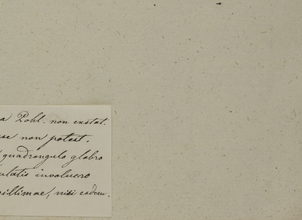 a Pohl. non existat.
se non potest,
quadrangulo glabro
ulatis involucro
illimae, nisi eadem